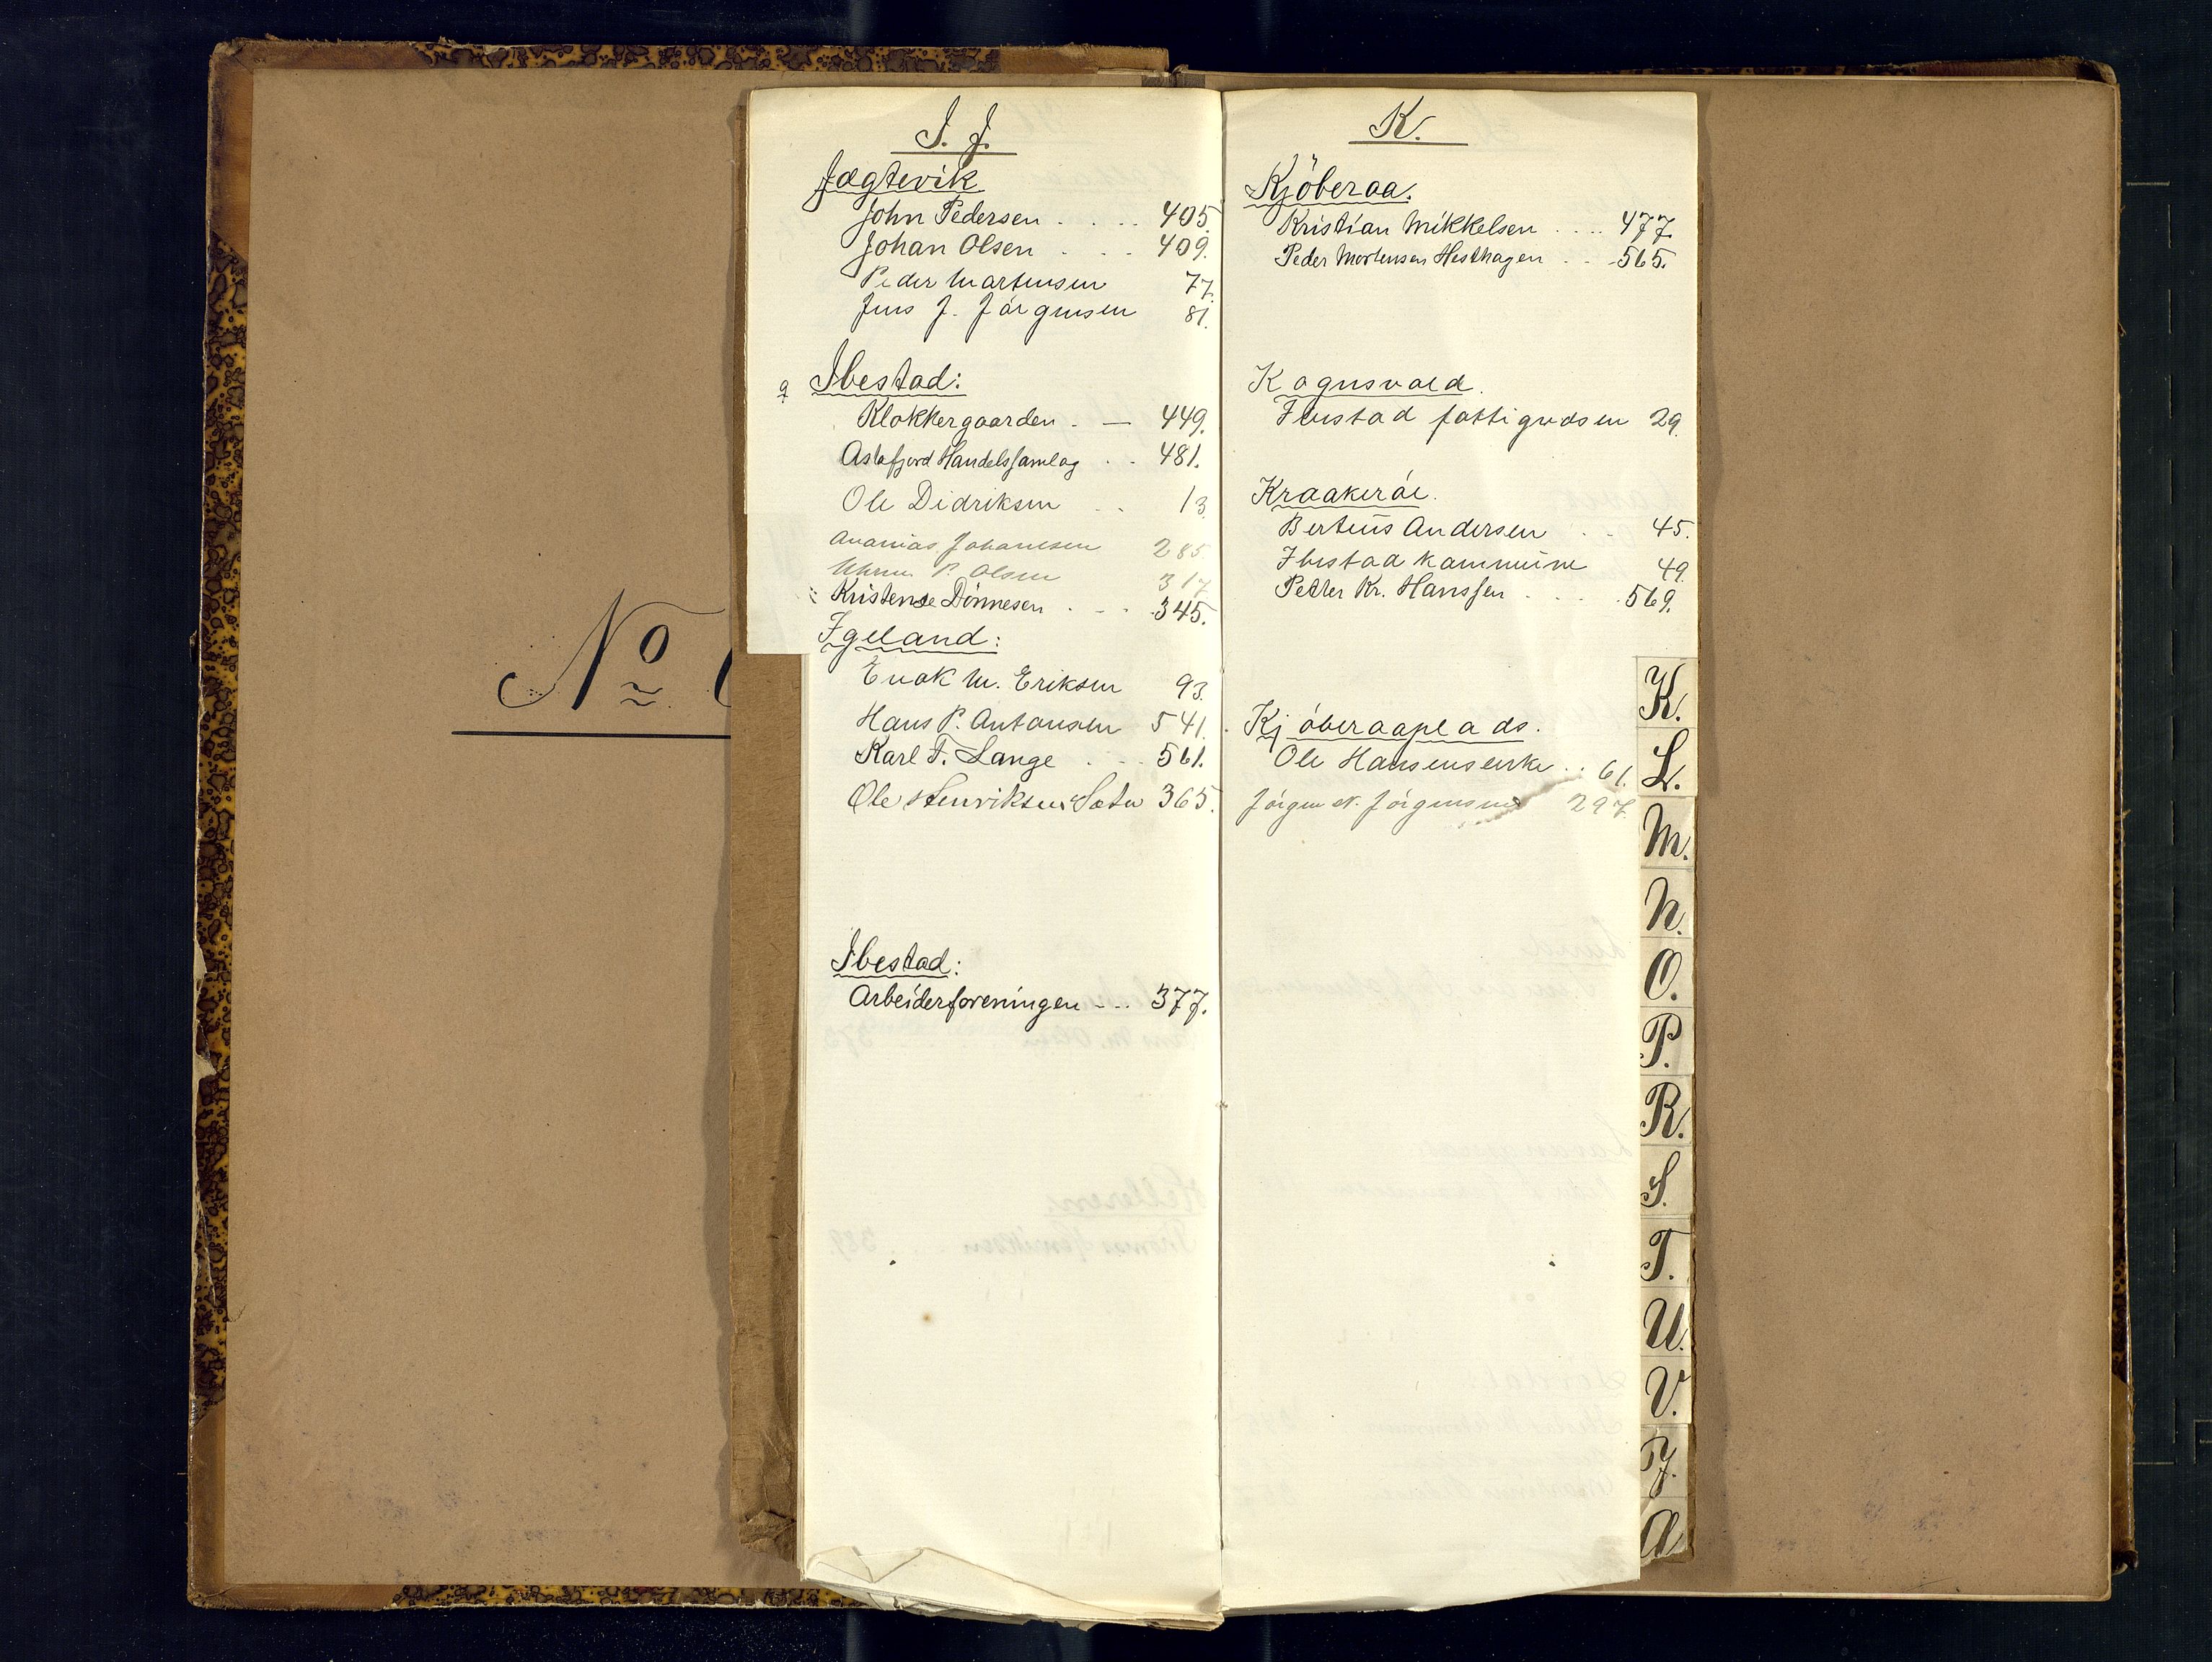 No
I. J.
Jægtevik
John Pedersen . . . . 405.
Johan Olsen . . . 409.
Peder Martensen 77.
Jens J. Jörgensen 81.
Ibestad:
Klokkergaarden . — 449.
Astafjord Handelssamlag . . 481.
Ole Didriksen . . 13.
Ananias Johansen 285
P. Olsen 317
Kristense Dönnesen . . . 345.
Igeland:
Enok M. Eriksen 93.
Hans P. Antonsen 541.
Karl F. Lange . . . 561.
Ole Henriksen Sætu 365.
Ibestad:
Arbeiderforeningen - - . 377.
K.
Kjöberaa.
Kristian Mikkelsen . . . . 477.
Peder Mortensen Hesthagen . . 565.
Kognsvold.
Ibestad fattigvæsen 29.
Kraakeröe.
Berteüs Andersen . . 45.
Ibestad kommüne 49.
Petter Kr. Hanssen . . . . 569.
Kjöberaaplads.
Ole Hansens enke . . 61.
Jörgen N. Jörgensen 297.
K.
L.
M.
N.
O.
P.
R.
S.
T.
U.
V.